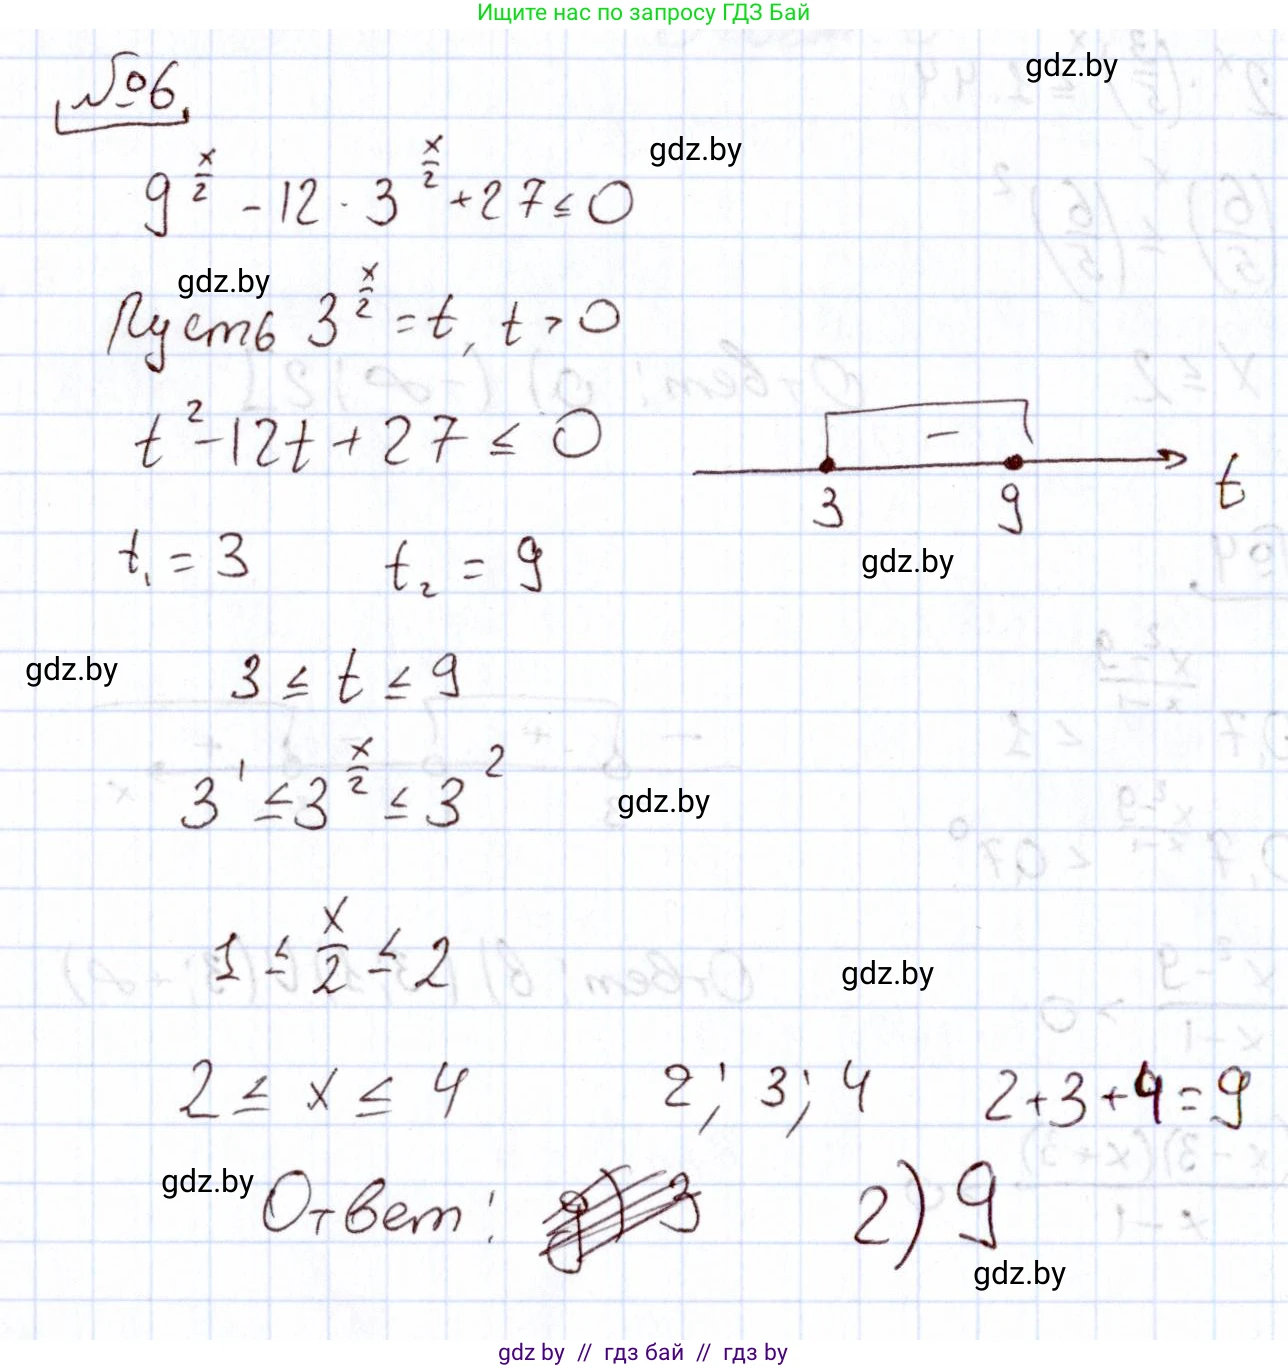 Ищите нас по запросу ГДЗ Бай
№6
gdz.by
9^(x/2) - 12 · 3^(x/2) + 27 ≤ 0
gdz.by
gdz.by
Пусть 3^(x/2) = t, t > 0
t² - 12t + 27 ≤ 0
-
3 9 t
t₁ = 3 t₂ = 9
gdz.by
gdz.by
3 ≤ t ≤ 9
3^1 ≤ 3^(x/2) ≤ 3^2
gdz.by
1 ≤ x/2 ≤ 2
gdz.by
2 ≤ x ≤ 4 2; 3; 4 2+3+4=9
gdz.by
Ответ: 2) 9
gdz.by
gdz.by // гдз бай // гдз by